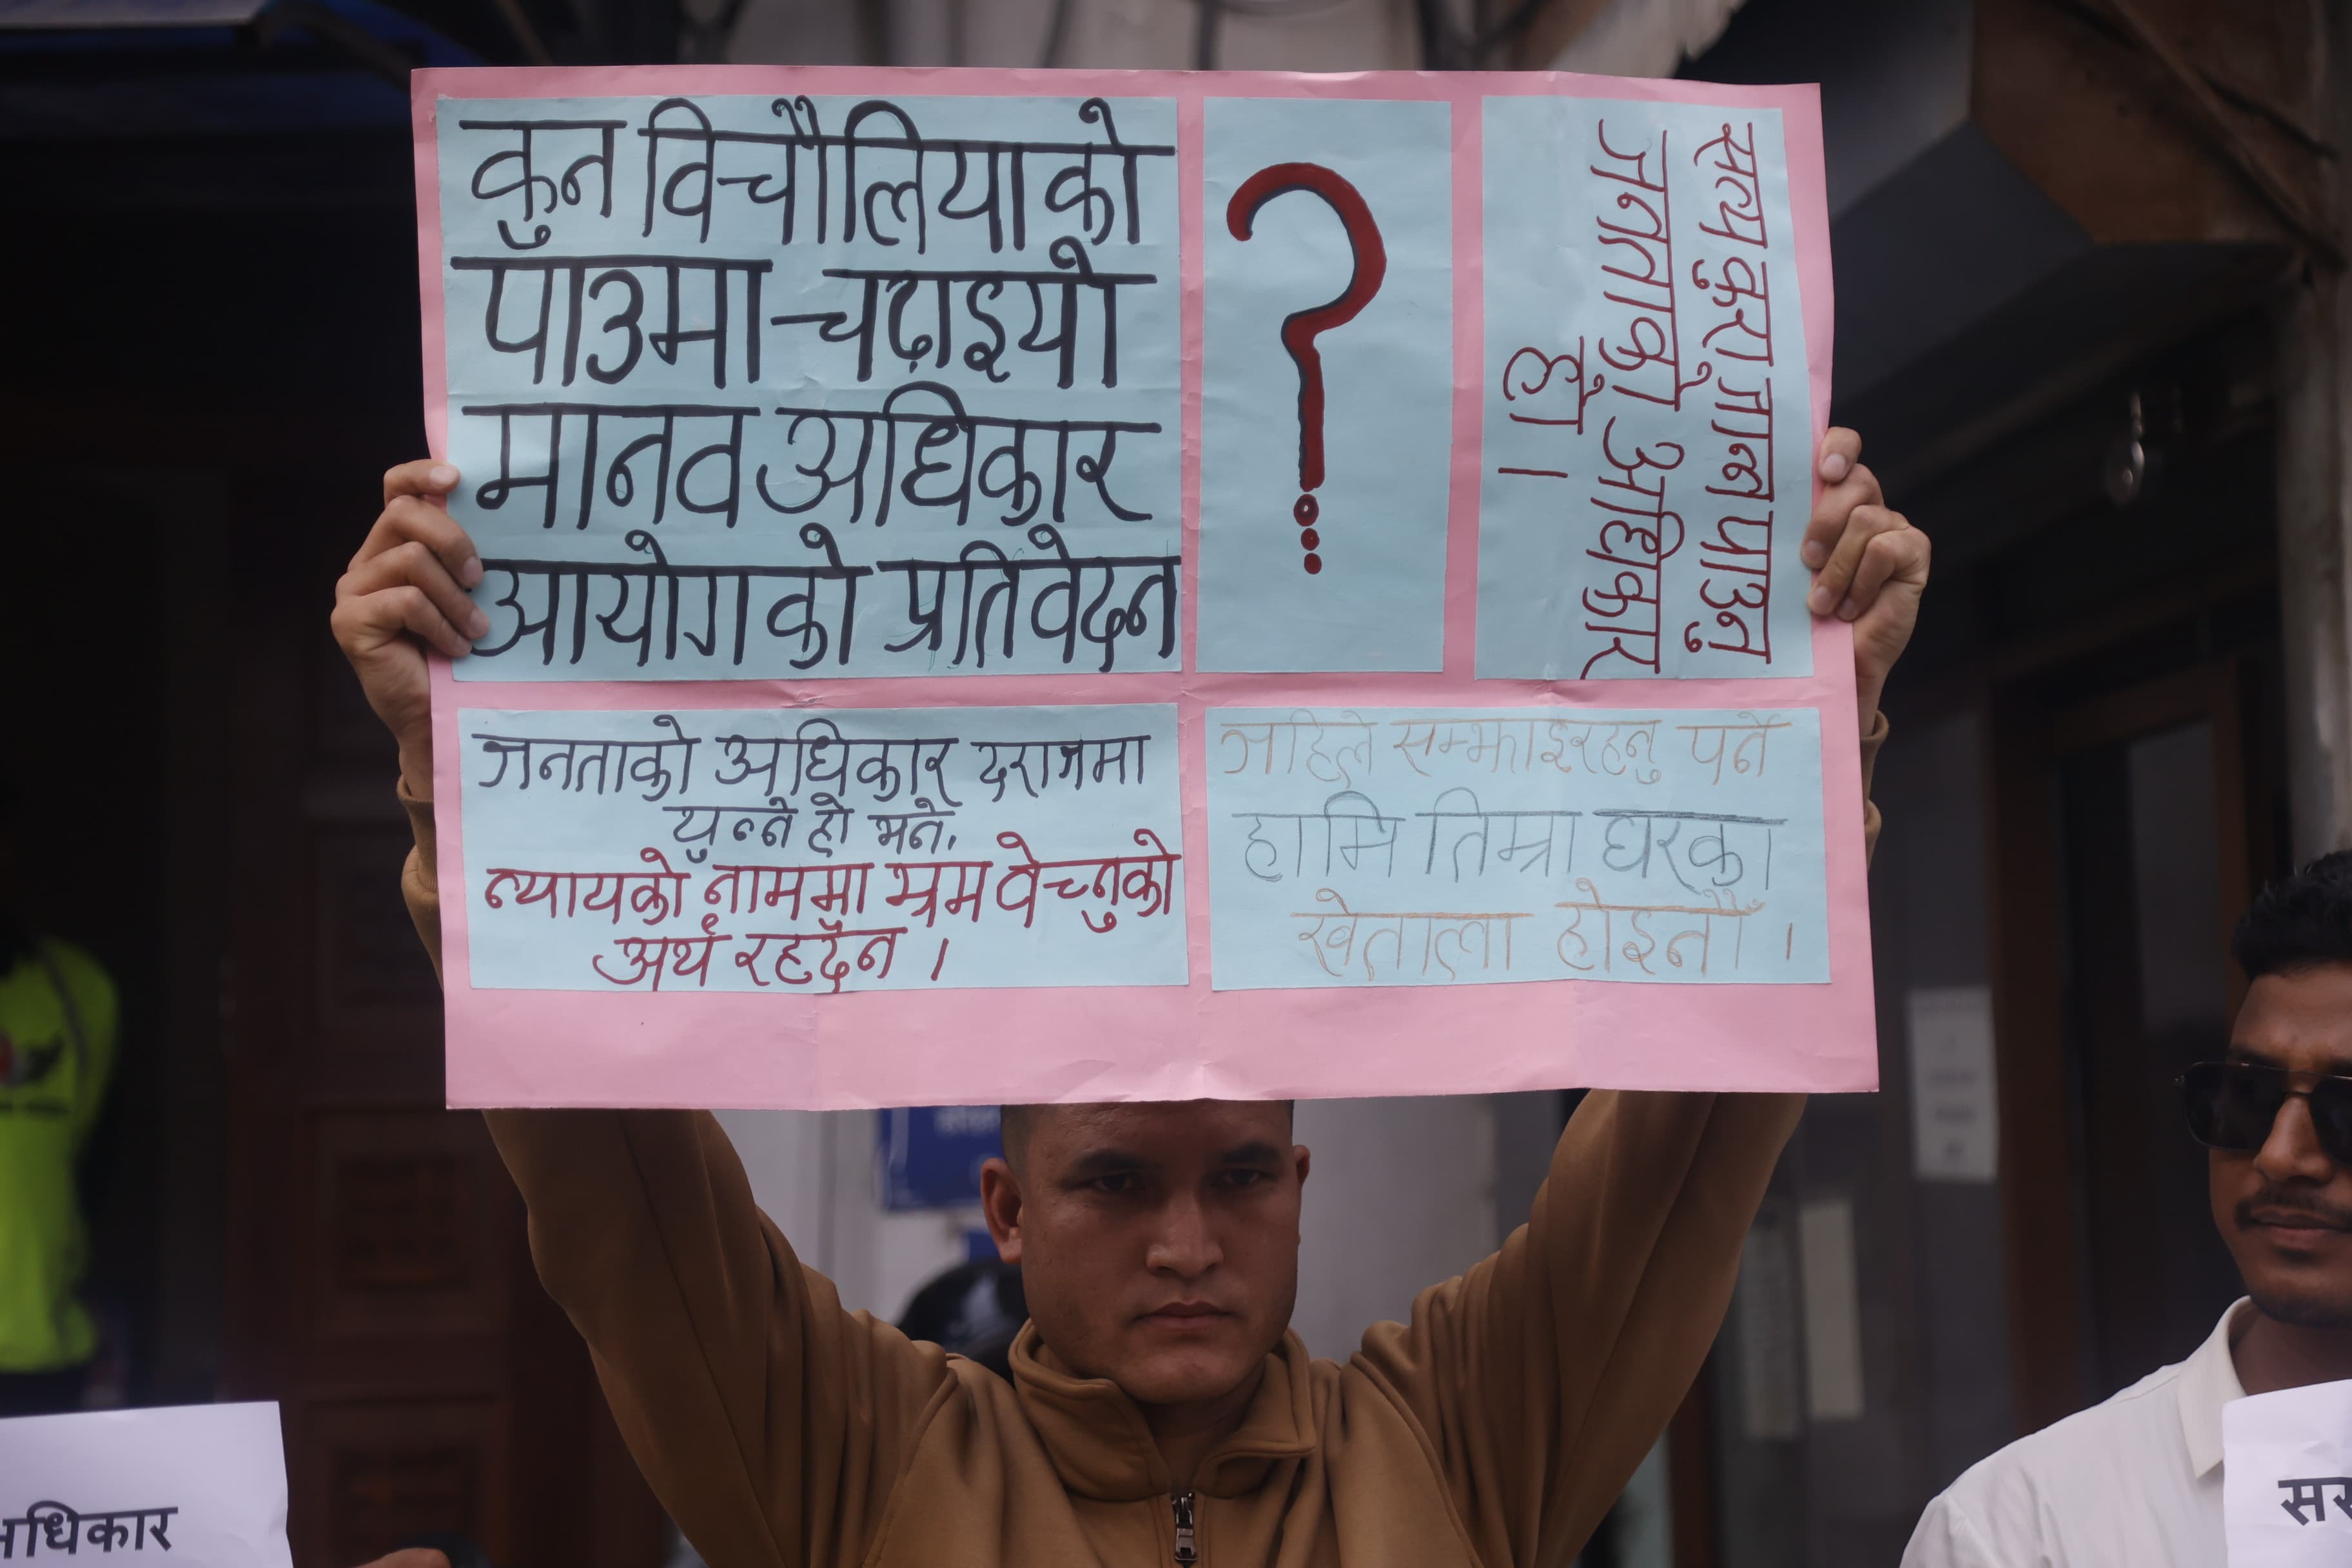 कुन विचौलियाको
पाउमा चढाइयो
मानव अधिकार
आयोगको प्रतिवेदन
?
सत्य कुरा जान्न पाउनु
जनताको अधिकार
हो।
जनताको अधिकार दराजमा
थुन्ने हो भने,
न्यायको नाममा भ्रम वेच्नुको
अर्थ रहदैन ।
जहिले सम्झाइरहनु पर्ने
हामि तिम्रा घरका
खेताला होइनौँ ।
अधिकार